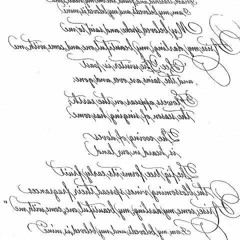 I am my beloved's and my beloved is mine
My beloved spoke, and said to me
"Arise, my darling, my beautiful one, come with me
The winter is past
and the rains are over and gone.
Flowers appear on the earth,
the season of singing has come
The cooing of doves
is heard in our land.
The fig tree forms its early fruit
the blossoming vines spread their fragrance.
Arise, come, my darling, my beautiful one, come with me"
I am my beloved's and my beloved is mine